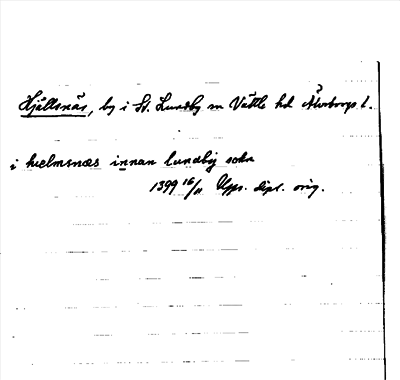 Hjällsnäs, by i St. Lundby sn Vättle hd Älvborgs l.
i hælmsnæs innan lundby sokn
1399 16/11 Upps. dipl. orig.